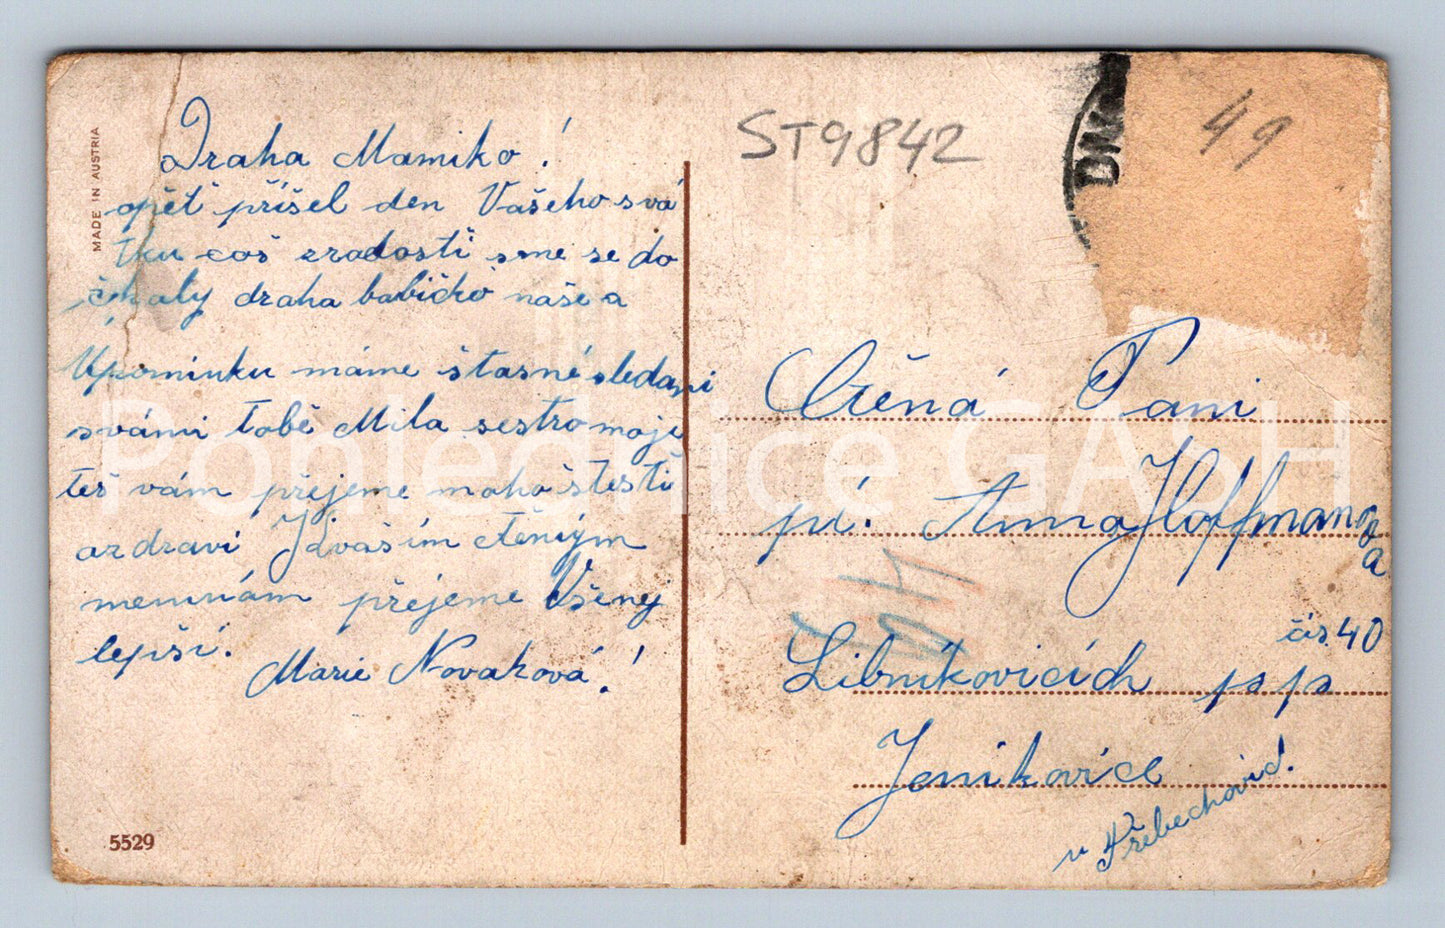 MADE IN AUSTRIA
Draha Mamiko!
opět přišel den Vašeho svá
tku coš zradosti sme se do
čekaly draha babičko naše a
Upominku máme štasné sledani
svámi tobě Mila sestro moje
teš vám přejeme moho štesti
azdravi Jdvaším ctěným
menunám přejeme Všeny
lepši.
Marie Novaková!
5529
ST9842
49
DN
Ctěná Pani
pí. Anna Hoffmanova
čis. 40
Libníkovicích psp
Jenikovice
u Třebechovid.
Pohlednice GASH